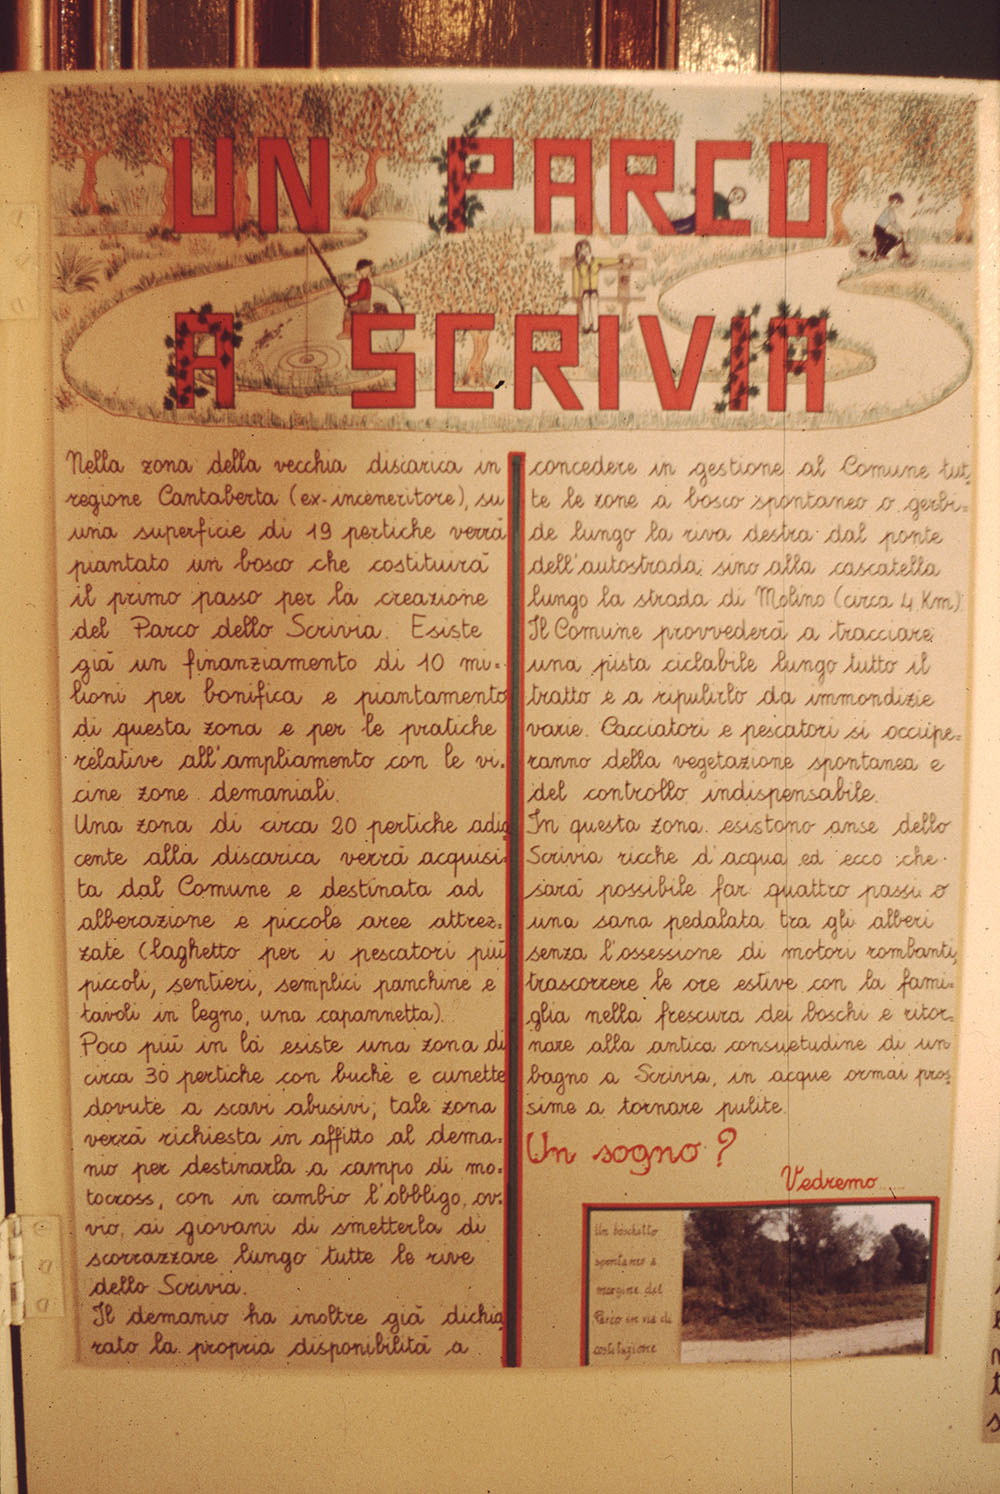 UN PARCO
A SCRIVIA
Nella zona della vecchia discarica in
regione Cantaberta (ex-inceneritore), su
una superficie di 19 pertiche verrà
piantato un bosco che costituirà
il primo passo per la creazione
del Parco dello Scrivia. Esiste
già un finanziamento di 10 mi=
lioni per bonifica e piantamento
di questa zona e per le pratiche
relative all'ampliamento con le vi=
cine zone demaniali.
Una zona di circa 20 pertiche adia
cente alla discarica verrà acquisi=
ta dal Comune e destinata ad
alberazione e piccole aree attrez=
zate (laghetto per i pescatori più
piccoli, sentieri, semplici panchine e
tavoli in legno, una capannetta).
Poco più in là esiste una zona di
circa 30 pertiche con buche e cunette
dovute a scavi abusivi; tale zona
verrà richiesta in affitto al dema=
nio per destinarla a campo di mo=
tocross, con in cambio l'obbligo, ov=
vio, ai giovani di smetterla di
scorrazzare lungo tutte le rive
dello Scrivia.
Il demanio ha inoltre già dichia
rato la propria disponibilità a
concedere in gestione al Comune tut=
te le zone a bosco spontaneo o gerbi=
de lungo la riva destra dal ponte
dell'autostrada, sino alla cascatella
lungo la strada di Molino (circa 4 Km).
Il Comune provvederà a tracciare
una pista ciclabile lungo tutto il
tratto e a ripulirlo da immondizie
varie. Cacciatori e pescatori si occupe=
ranno della vegetazione spontanea e
del controllo indispensabile.
In questa zona esistono anse dello
Scrivia ricche d'acqua ed ecco che
sarà possibile far quattro passi o
una sana pedalata tra gli alberi
senza l'ossessione di motori rombanti,
trascorrere le ore estive con la fami=
glia nella frescura dei boschi e ritor=
nare alla antica consuetudine di un
bagno a Scrivia, in acque ormai pros=
sime a tornare pulite.
Un sogno?
Vedremo......
Un boschetto
spontaneo a
margine del
Parco in via di
costituzione